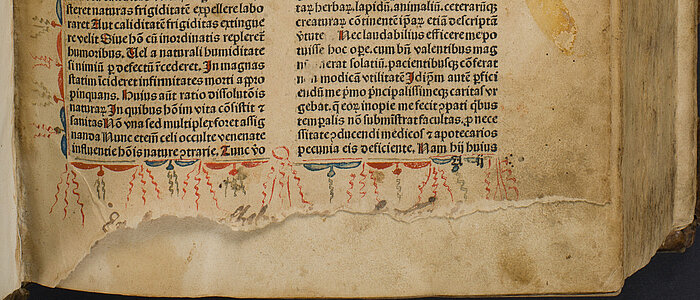 steret naturas frigiditatē expellere labo
raret Aut caliditatē frigiditas extingue
re velit Siue hō cū inordinatis repleret̄
humoribus. Vel a naturali humiditate
si nimiū ꝑ defectū r̄cederet. In magnas
statim īcideret infirmitates morti a ꝓro
pinquans. Huius aūt ratio dissolutōis
naturaꝝ. In quibus hoīm vita cōsistit ⁊
sanitas Nō vna sed multiplex foret assig
nanda Nunc etem̄ celi occulte venenate
influentie hoīs nature ꝯtrarie. Tunc vo
raꝝ herbaꝝ. lapidū. animaliū. ceterarūqꝫ
creaturaꝝ cōtinent̄ īpaꝝ etiā descriptā
v̄tute Nec laudabilius efficere me po
tuisse hoc ope. cum bn̄ valentibus mag
solatiū. pacientibusqꝫ cōferat
modicen vtilitatē Id ip̄m aūt ꝑfici
endū me p̄mo p̄ncipalissimeqꝫ caritas vr
gebat. ꝙ eoꝝ inopie me fecit ꝯpati qͥbus
tem ꝑalis nō submīstrat facultas. ꝓ nece
ssitate ꝯducendi medicos ⁊ apotecarios
pecunia eis deficiente. Nam hij huius